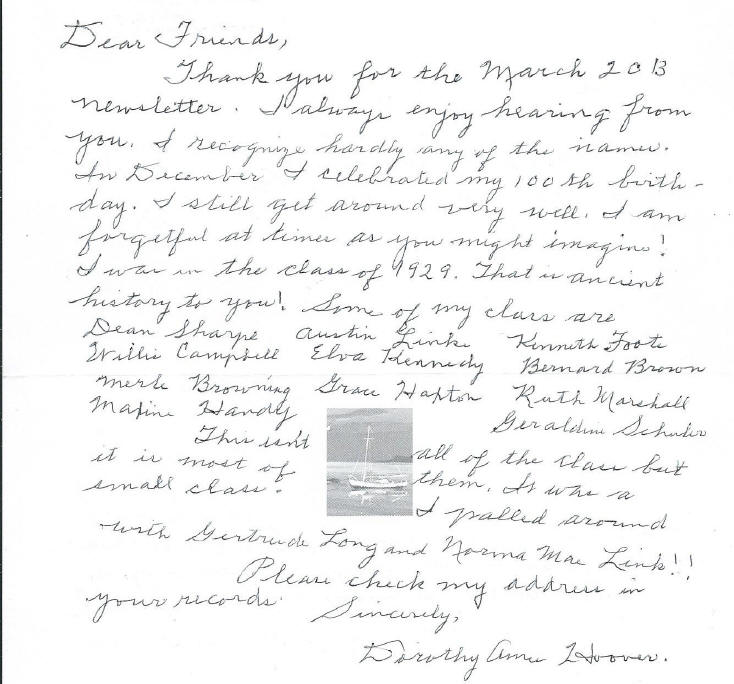 Dear Friends,
Thank you for the March 2013
newsletter. I always enjoy hearing from
you. I recognize hardly any of the names.
In December I celebrated my 100th birth-
day. I still get around very well. I am
forgetful at times as you might imagine!
I was in the class of 1929. That is ancient
history to you! Some of my class are
Dean Sharpe Austin Link Kenneth Foote
Willis Campbell Elva Kennedy Bernard Brown
Merle Browning Grace Ruth Marshall
Maxine Handy Geraldine
This isn't all of the class but
it is most of them. It was a
small class. I palled around
with Gertrude Long and Norma Mae Link!!
Please check my address in
your records.
Sincerely,
Dorothy Hoover.